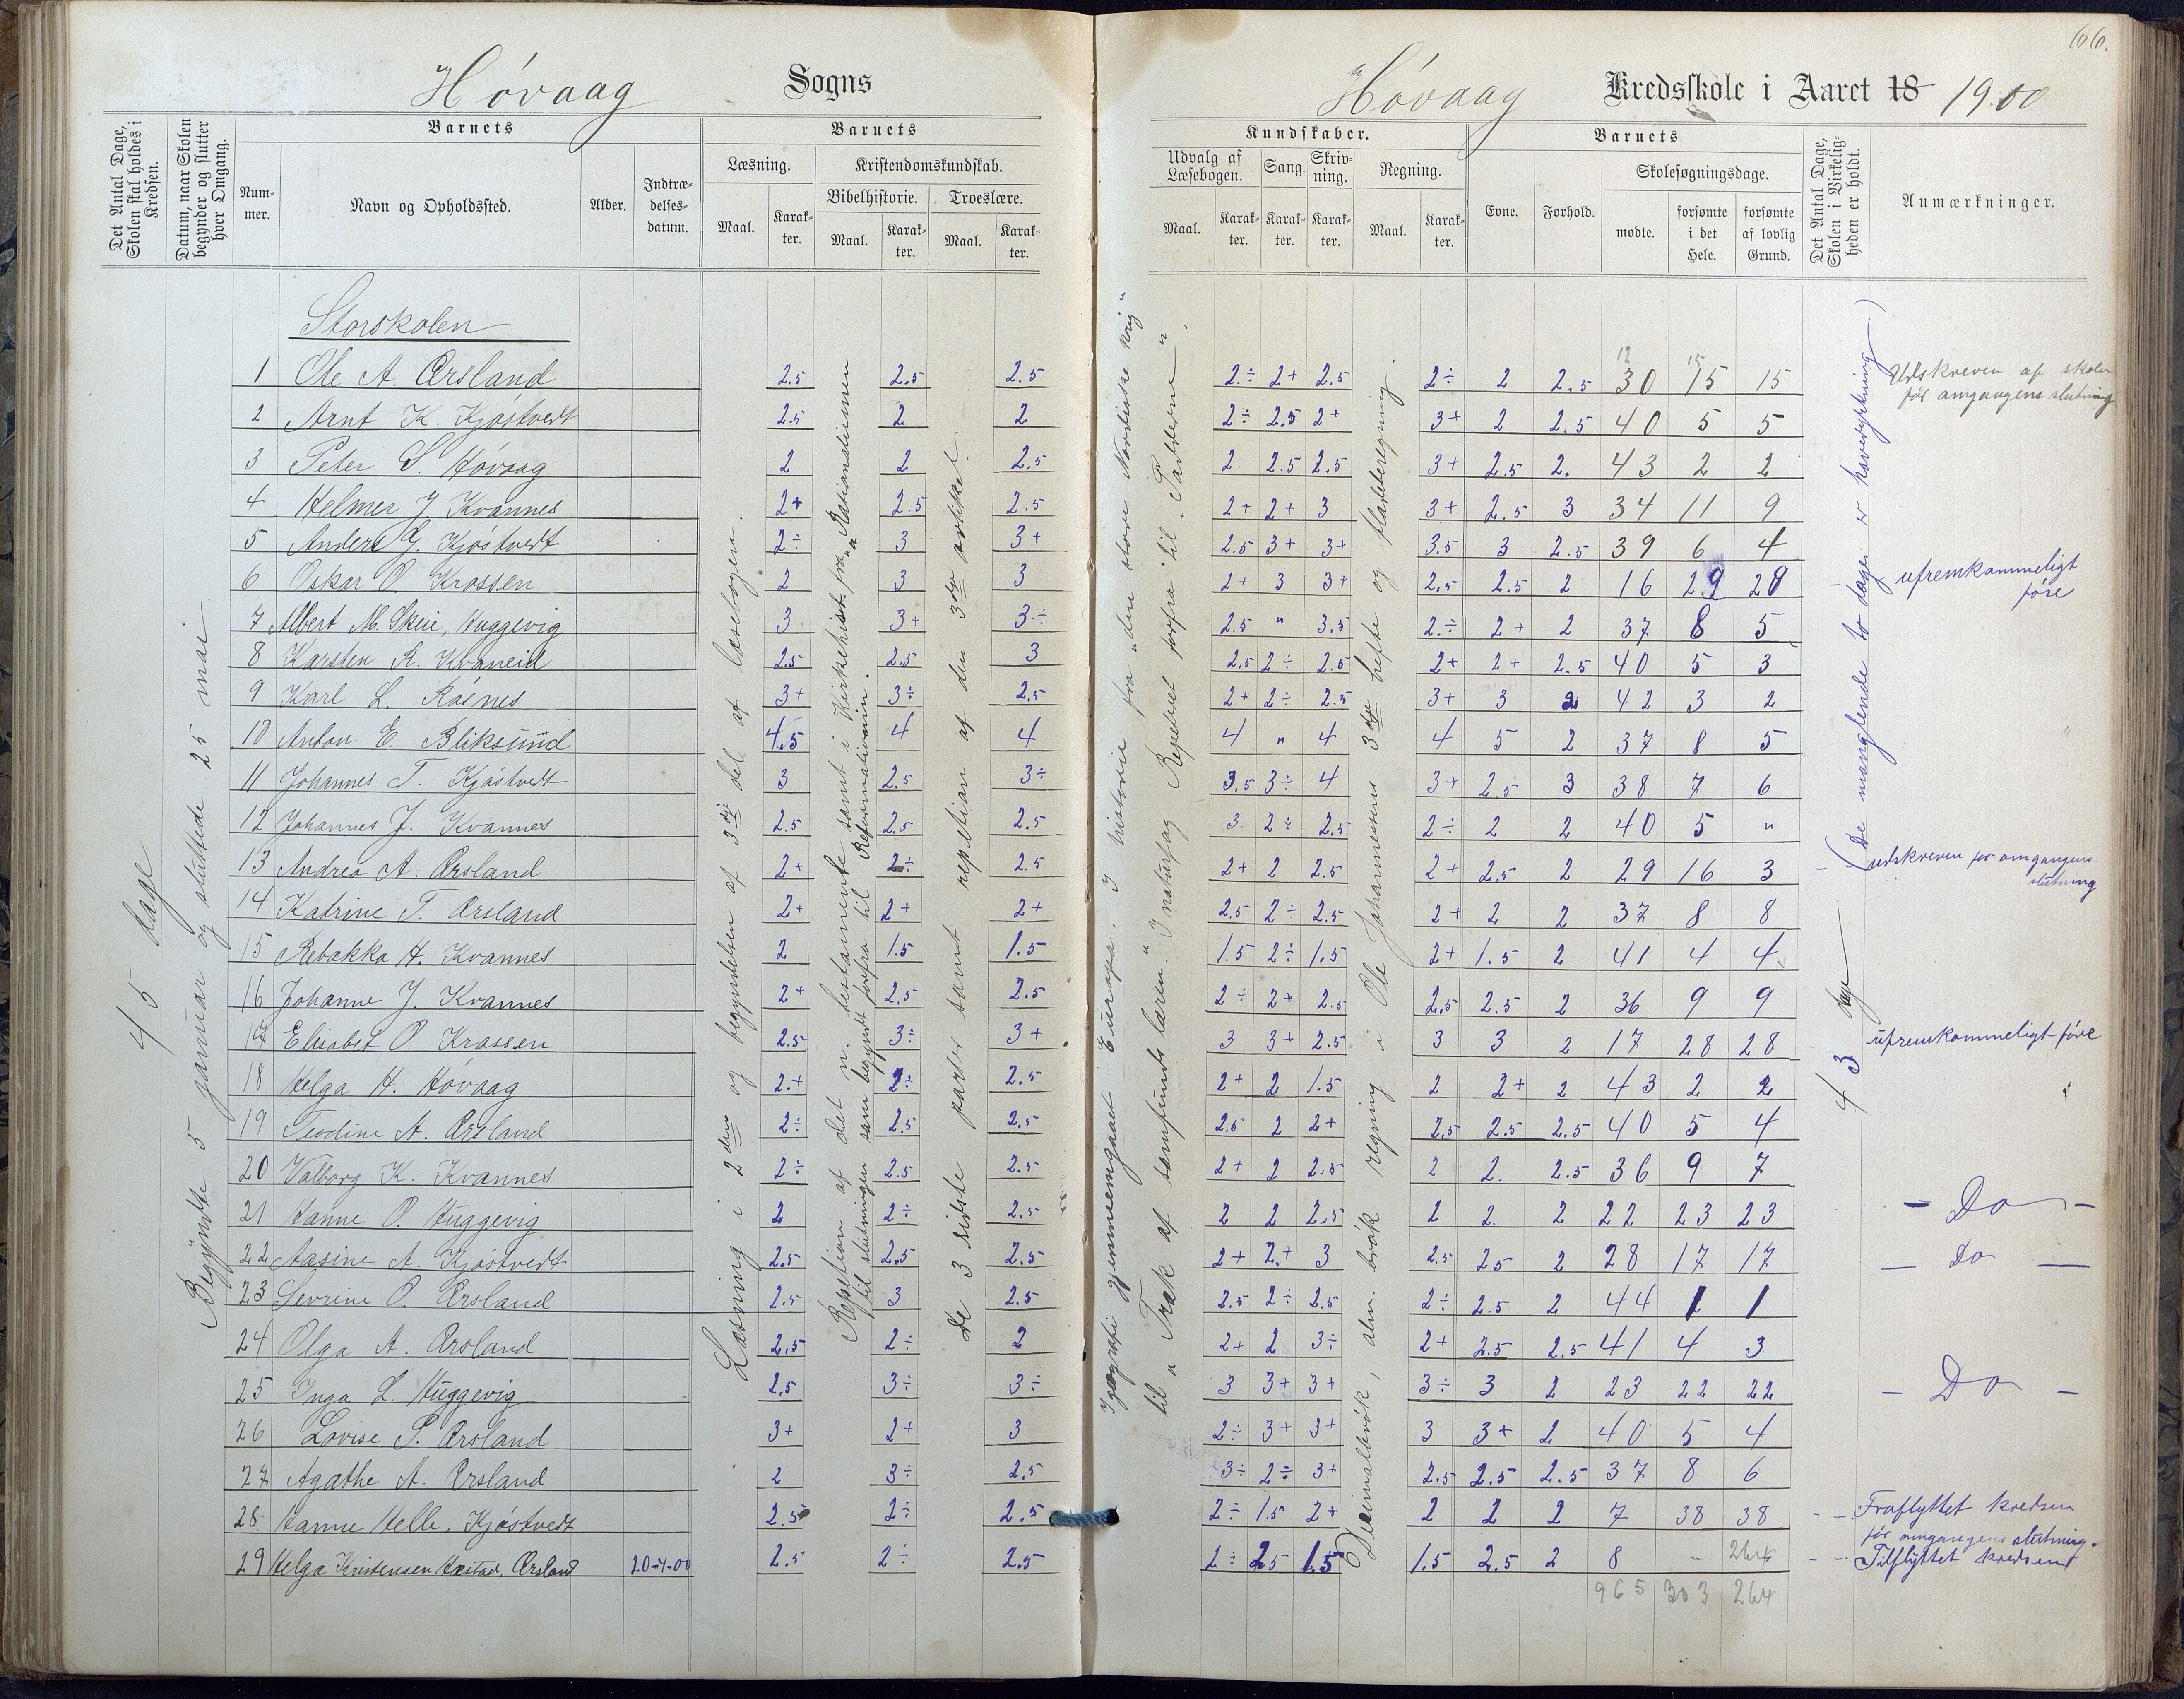 66.
Høvaag Sogns
Høvaag Kredsskole i Aaret 18 1900
Det Antal Dage, Skolen skal holdes i Kredsen.
Datum, naar Skolen begynder og slutter hver Omgang.
Barnets
Nummer.
Navn og Opholdssted.
Alder.
Indtrædelsesdatum.
Barnets
Læsning.
Maal.
Karakter.
Kristendomskundskab.
Bibelhistorie.
Maal.
Karakter.
Troeslære.
Maal.
Karakter.
Kundskaber.
Udvalg af Læsebogen.
Maal.
Karakter.
Sang.
Karakter.
Skrivning.
Karakter.
Regning.
Maal.
Karakter.
Barnets
Evne.
Forhold.
Skolesøgningsdage.
mødte.
forsømte i det Hele.
forsømte af lovlig Grund.
Det Antal Dage, Skolen i Virkeligheden er holdt.
Anmærkninger.
45 dage
Begyndte 5 januar og sluttede 25 mai
Læsning i 2den og begyndelsen af 3dje del af læsebogen.
Repetion af det n. testamente samt i Kirkehist. fra "Rationalismen
til slutningen sam begyndt forfra til Reformationen.
De 3 sidste parter samt repetion af den 3die artikkel.
I geografi gjennemgaaet Europa. I historie fra "den store Nordiske krig"
til "Træk af samfundslæren." I naturfag Repeteret forfra til "Pattedyrene".
Decimalbrøk, alm. brøk regning i Ole Johannesens 3die hefte og fladeberegning
43 dage (De manglende to dage er havestyrkning)
Storskolen
1 Ole A. Ørsland 2.5 2.5 2.5 2÷ 2+ 2.5 2÷ 2 2.5 30 15 15 Udskreven af skolen før omgangens slutning
2 Arnt K. Kjøstvedt 2.5 2 2 2÷ 2.5 2+ 3+ 2 2.5 40 5 5
3 Peter S. Høvaag 2 2 2.5 2. 2.5 2.5 3+ 2.5 2. 43 2 2
4 Helmer J. Kvannes 2+ 2.5 2.5 2+ 2+ 3 3+ 2.5 3 34 11 9
5 Anders G. Kjøstvedt 2÷ 3 3+ 2.5 3+ 3+ 3.5 3 2.5 39 6 4
6 Oskar O. Krossen 2 3 3 2+ 3 3+ 2.5 2.5 2 16 29 29 ufremkommeligt føre
7 Albert M. Skeie, Huggevig 3 3+ 3÷ 2.5 " 3.5 2÷ 2+ 2 37 8 5
8 Karsten R. Kvaneid 2.5 2.5 3 2.5 2÷ 2.5 2+ 2+ 2.5 40 5 3
9 Karl L. Røsnes 3+ 3÷ 2.5 2+ 2÷ 2.5 3+ 3 2 42 3 2
10 Anton E. Bliksund 4.5 4 4 4 " 4 4 5 2 37 8 5
11 Johannes T. Kjøstvedt 3 2.5 3÷ 3.5 3÷ 4 3+ 2.5 3 38 7 6
12 Johannes J. Kvannes 2.5 2.5 2.5 3 2÷ 2.5 2÷ 2 2 40 5 "
13 Andrea A. Ørsland 2+ 2÷ 2.5 2+ 2 2.5 2+ 2.5 2 29 16 3 udskreven før omgangens slutning
14 Katrine T. Ørsland 2+ 2+ 2+ 2.5 2÷ 2.5 2+ 2 2 37 8 8
15 Rebekka H. Kvannes 2 1.5 1.5 1.5 2÷ 1.5 2+ 1.5 2 41 4 4
16 Johanne J. Kvannes 2+ 2.5 2.5 2÷ 2+ 2.5 2.5 2.5 2 36 9 9
17 Elisabet O. Krossen 2.5 3÷ 3+ 3 3+ 2.5 3 3 2 17 28 28 ufremkommeligt føre
18 Helga H. Høvaag 2+ 2÷ 2.5 2+ 2 1.5 2 2+ 2 43 2 2
19 Teodine A. Ørsland 2÷ 2.5 2.5 2.5 2 2+ 2.5 2.5 2.5 40 5 4
20 Valborg K. Kvannes 2÷ 2.5 2.5 2+ 2 2.5 2 2. 2.5 36 9 7
21 Hanne O. Huggevig 2 2÷ 2.5 2 2 2.5 2 2. 2 22 23 23 - Do -
22 Aasine A. Kjøstvedt 2.5 2.5 2.5 2+ 2+ 3 2.5 2.5 2 28 17 17 - Do -
23 Sevrine O. Ørsland 2.5 3 2.5 2.5 2÷ 2.5 2÷ 2.5 2 44 1 1
24 Olga A. Ørsland 2.5 2÷ 2 2+ 2 3÷ 2+ 2.5 2.5 41 4 3
25 Inga L. Huggevig 2.5 3÷ 3÷ 3 3+ 3+ 3÷ 3 2 23 22 22 - Do -
26 Lovise P. Ørsland 3+ 2+ 3 2÷ 3+ 3+ 3 3+ 2 40 5 4
27 Agathe A. Ørsland 2 3÷ 2.5 3÷ 2÷ 3+ 2.5 2.5 2.5 37 8 6
28 Hanne Helle, Kjøstvedt 2.5 2÷ 2.5 2÷ 1.5 2+ 2 2 2 7 38 38 Fraflyttet kredsen før omgangens slutning.
29 Helga Kristensen Hæstad, Ørsland 20-4-00 2.5 2÷ 2.5 2÷ 2.5 1.5 1.5 2.5 2 8 " 264 Tilflyttet kredsen
965 303 264